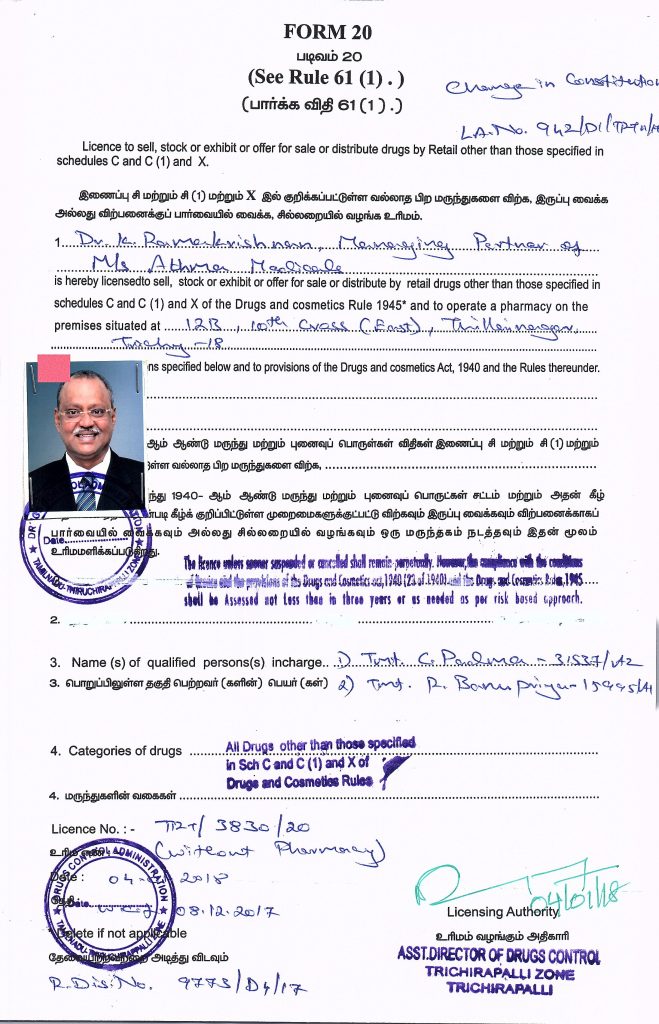 FORM 20
படிவம் 20
(See Rule 61 (1) . )
(பார்க்க விதி 61 (1) . )
Change in Constitution
L.A.No. 942/D1/
Licence to sell, stock or exhibit or offer for sale or distribute drugs by Retail other than those specified in
schedules C and C (1) and X.
இணைப்பு சி மற்றும் சி (1) மற்றும் X இல் குறிக்கப்பட்டுள்ள வல்லாத பிற மருந்துகளை விற்க, இருப்பு வைக்க
அல்லது விற்பனைக்குப் பார்வையில் வைக்க, சில்லறையில் வழங்க உரிமம்.
1. Dr. K. Ramakrishnan, Managing Partner of
M/s Athma Medicals
is hereby licensedto sell, stock or exhibit or offer for sale or distribute by retail drugs other than those specified in
schedules C and C (1) and X of the Drugs and cosmetics Rule 1945* and to operate a pharmacy on the
premises situated at 12B, 10th Cross (East), Thillainagar,
Trichy -18
ns specified below and to provisions of the Drugs and cosmetics Act, 1940 and the Rules thereunder.
ஆம் ஆண்டு மருந்து மற்றும் புனைவுப் பொருள்கள் விதிகள் இணைப்பு சி மற்றும் சி (1) மற்றும்
ள்ள வல்லாத பிற மருந்துகளை விற்க,
ந்து 1940- ஆம் ஆண்டு மருந்து மற்றும் புனைவுப் பொருட்கள் சட்டம் மற்றும் அதன் கீழ்
படி கீழ்க் குறிப்பிட்டுள்ள முறைமைகளுக்குட்பட்டு விற்கவும் இருப்பு வைக்கவும் விற்பனைக்காகப்
பார்வையில் வைக்கவும் அல்லது சில்லறையில் வழங்கவும் ஒரு மருந்தகம் நடத்தவும் இதன் மூலம்
உரிமமளிக்கப்படுகிறது.
Date
TAMILNADU-THIRUCHIRAPALLI ZONE
The licence unless sooner suspended or cancelled shall remain perpetually. However, the compliance with the conditions
of licence and the provisions of the Drugs and Cosmetics act,1940 (23 of 1940) and the Drugs and Cosmetics Rules,1945
shall be Assessed not Less than in three years or as needed as per risk based approach.
2.
3. Name (s) of qualified persons(s) incharge.. 1) Tmt. C. Padma - 31537/A2
3. பொறுப்பிலுள்ள தகுதி பெற்றவர் (களின்) பெயர் (கள்) 2) Tmt. R. Banupriya - 15445/A1
4. Categories of drugs All Drugs other than those specified
in Sch C and C (1) and X of
Drugs and Cosmetics Rules
4. மருந்துகளின் வகைகள்
Licence No. : - TRT/3830/20
உரிம எண் : (Without Pharmacy)
Date : 04- 2018
தேதி 08.12.2017
DRUGS CONTROL ADMINISTRATION
Date
* Delete if not applicable
தேவையற்றவற்றை அடித்து விடவும்
R.Dis.No. 9773/D4/17
04/01/18
Licensing Authority
உரிமம் வழங்கும் அதிகாரி
ASST.DIRECTOR OF DRUGS CONTROL
TRICHIRAPALLI ZONE
TRICHIRAPALLI